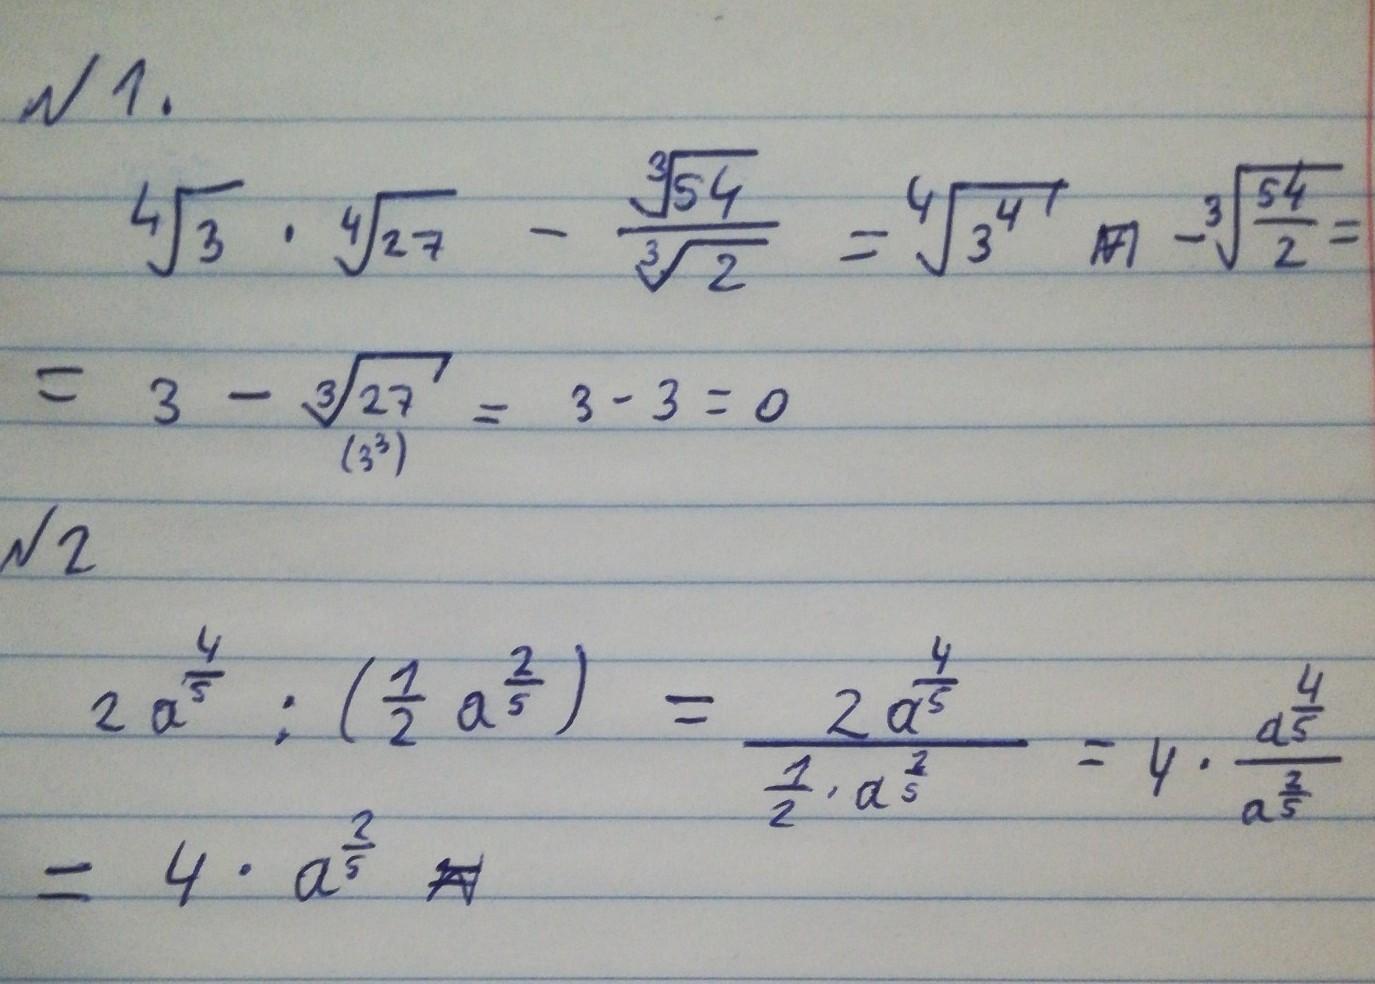 № 1.
⁴√3 · ⁴√27 - ³√54/³√2 = ⁴√3⁴ - ³√(54/2) =
= 3 - ³√27 = 3 - 3 = 0
(3³)
№ 2
2a^(4/5) : (1/2 a^(2/5)) = 2a^(4/5)/(1/2 · a^(2/5)) = 4 · a^(4/5)/a^(2/5)
= 4 · a^(2/5)